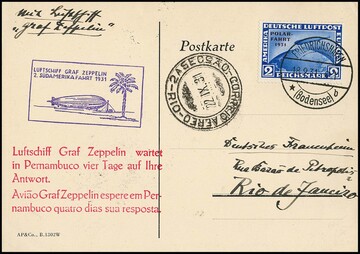 Mit Luftschiff
„Graf Zeppelin“
Postkarte
DEUTSCHE LUFTPOST
POLAR-
FAHRT
1931
AMERIKA
EUROPA
2 REICHSMARK 2
FRIEDRICHSHAFEN
(Bodensee)
2A SECSÃO-CORREIO AEREO-D.R.
22.IX.31
LUFTSCHIFF GRAF ZEPPELIN
2. SÜDAMERIKAFAHRT 1931
Luftschiff Graf Zeppelin wartet
in Pernambuco vier Tage auf Ihre
Antwort.
Avião Graf Zeppelin espere em Per-
nambuco quatro dias sua resposta.
Deutsches Frauenheim
Rua Barao de Petropolis
Rio de Janeiro
AP&Co., B.1202W